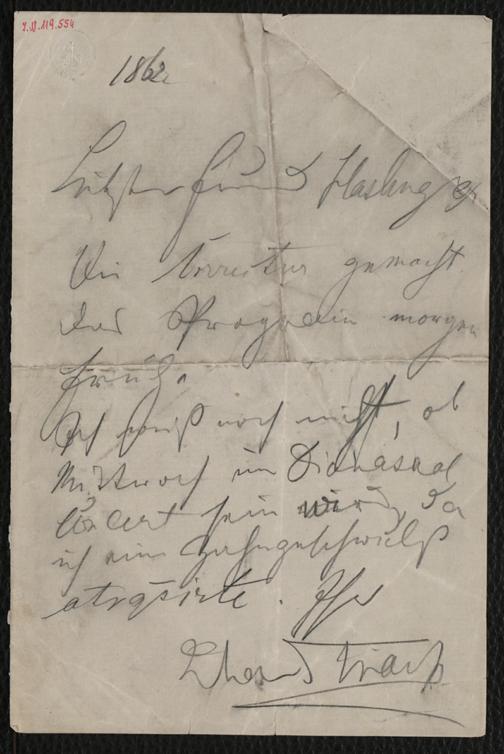 I.N.119.554
1862
Liebster Freund Haslinger
Die Correctur gemacht
Das Programm morgen
früh.
Ich weiß noch nicht, ob
Mittwoch im Dianasaal
Concert sein wird, da
ich eine Zahngeschwulst
Ihr
Eduard Strauß